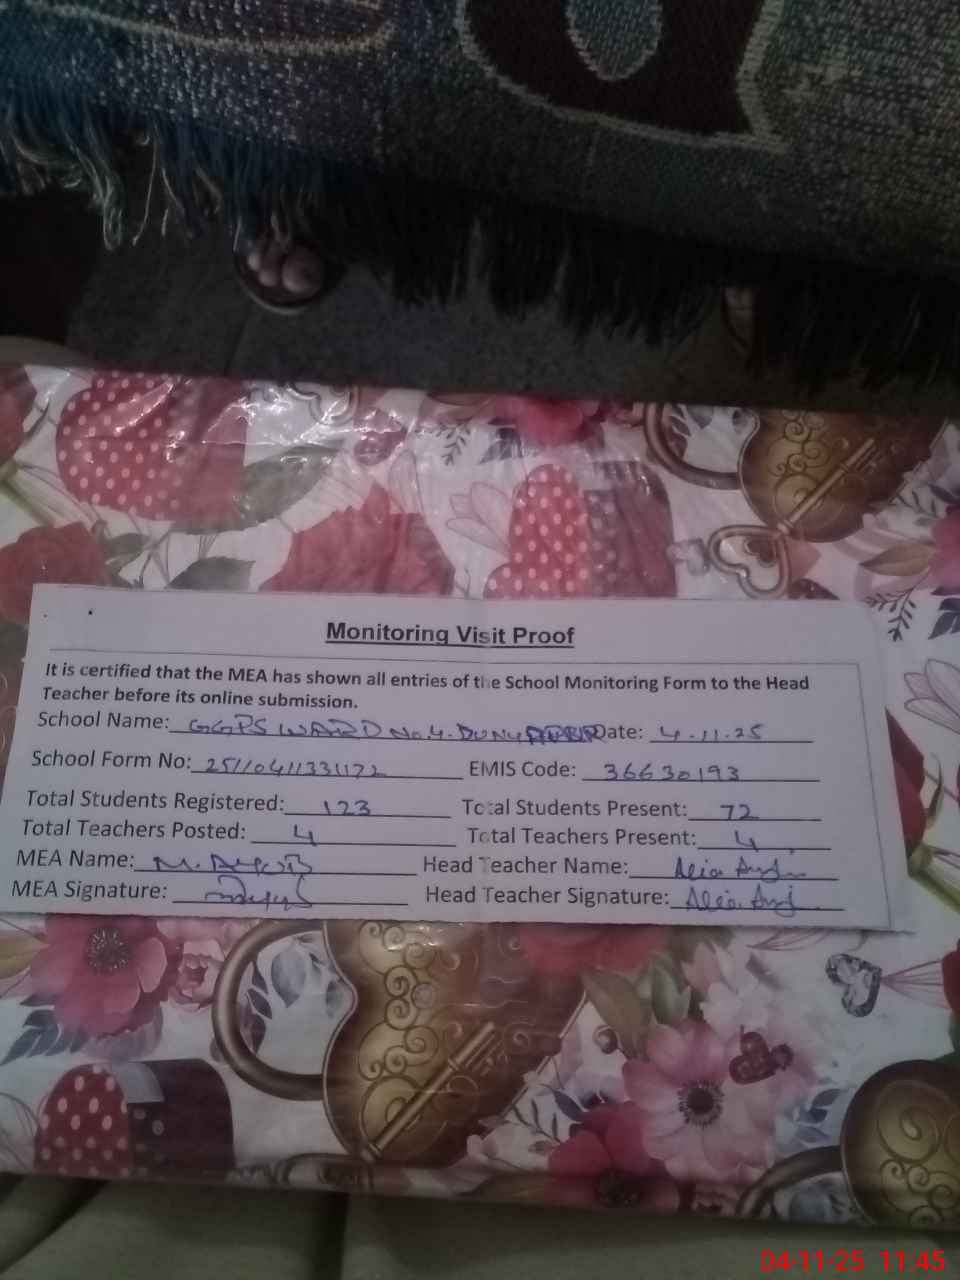 Monitoring Visit Proof
It is certified that the MEA has shown all entries of the School Monitoring Form to the Head
Teacher before its online submission.
School Name: GGPS WARD No.4. Date: 4.11.25
School Form No: EMIS Code: 36630193
Total Students Registered: 123 Total Students Present: 72
Total Teachers Posted: 4 Total Teachers Present: 4
MEA Name: M. Head Teacher Name:
MEA Signature: Head Teacher Signature:
04-11-25 11:45